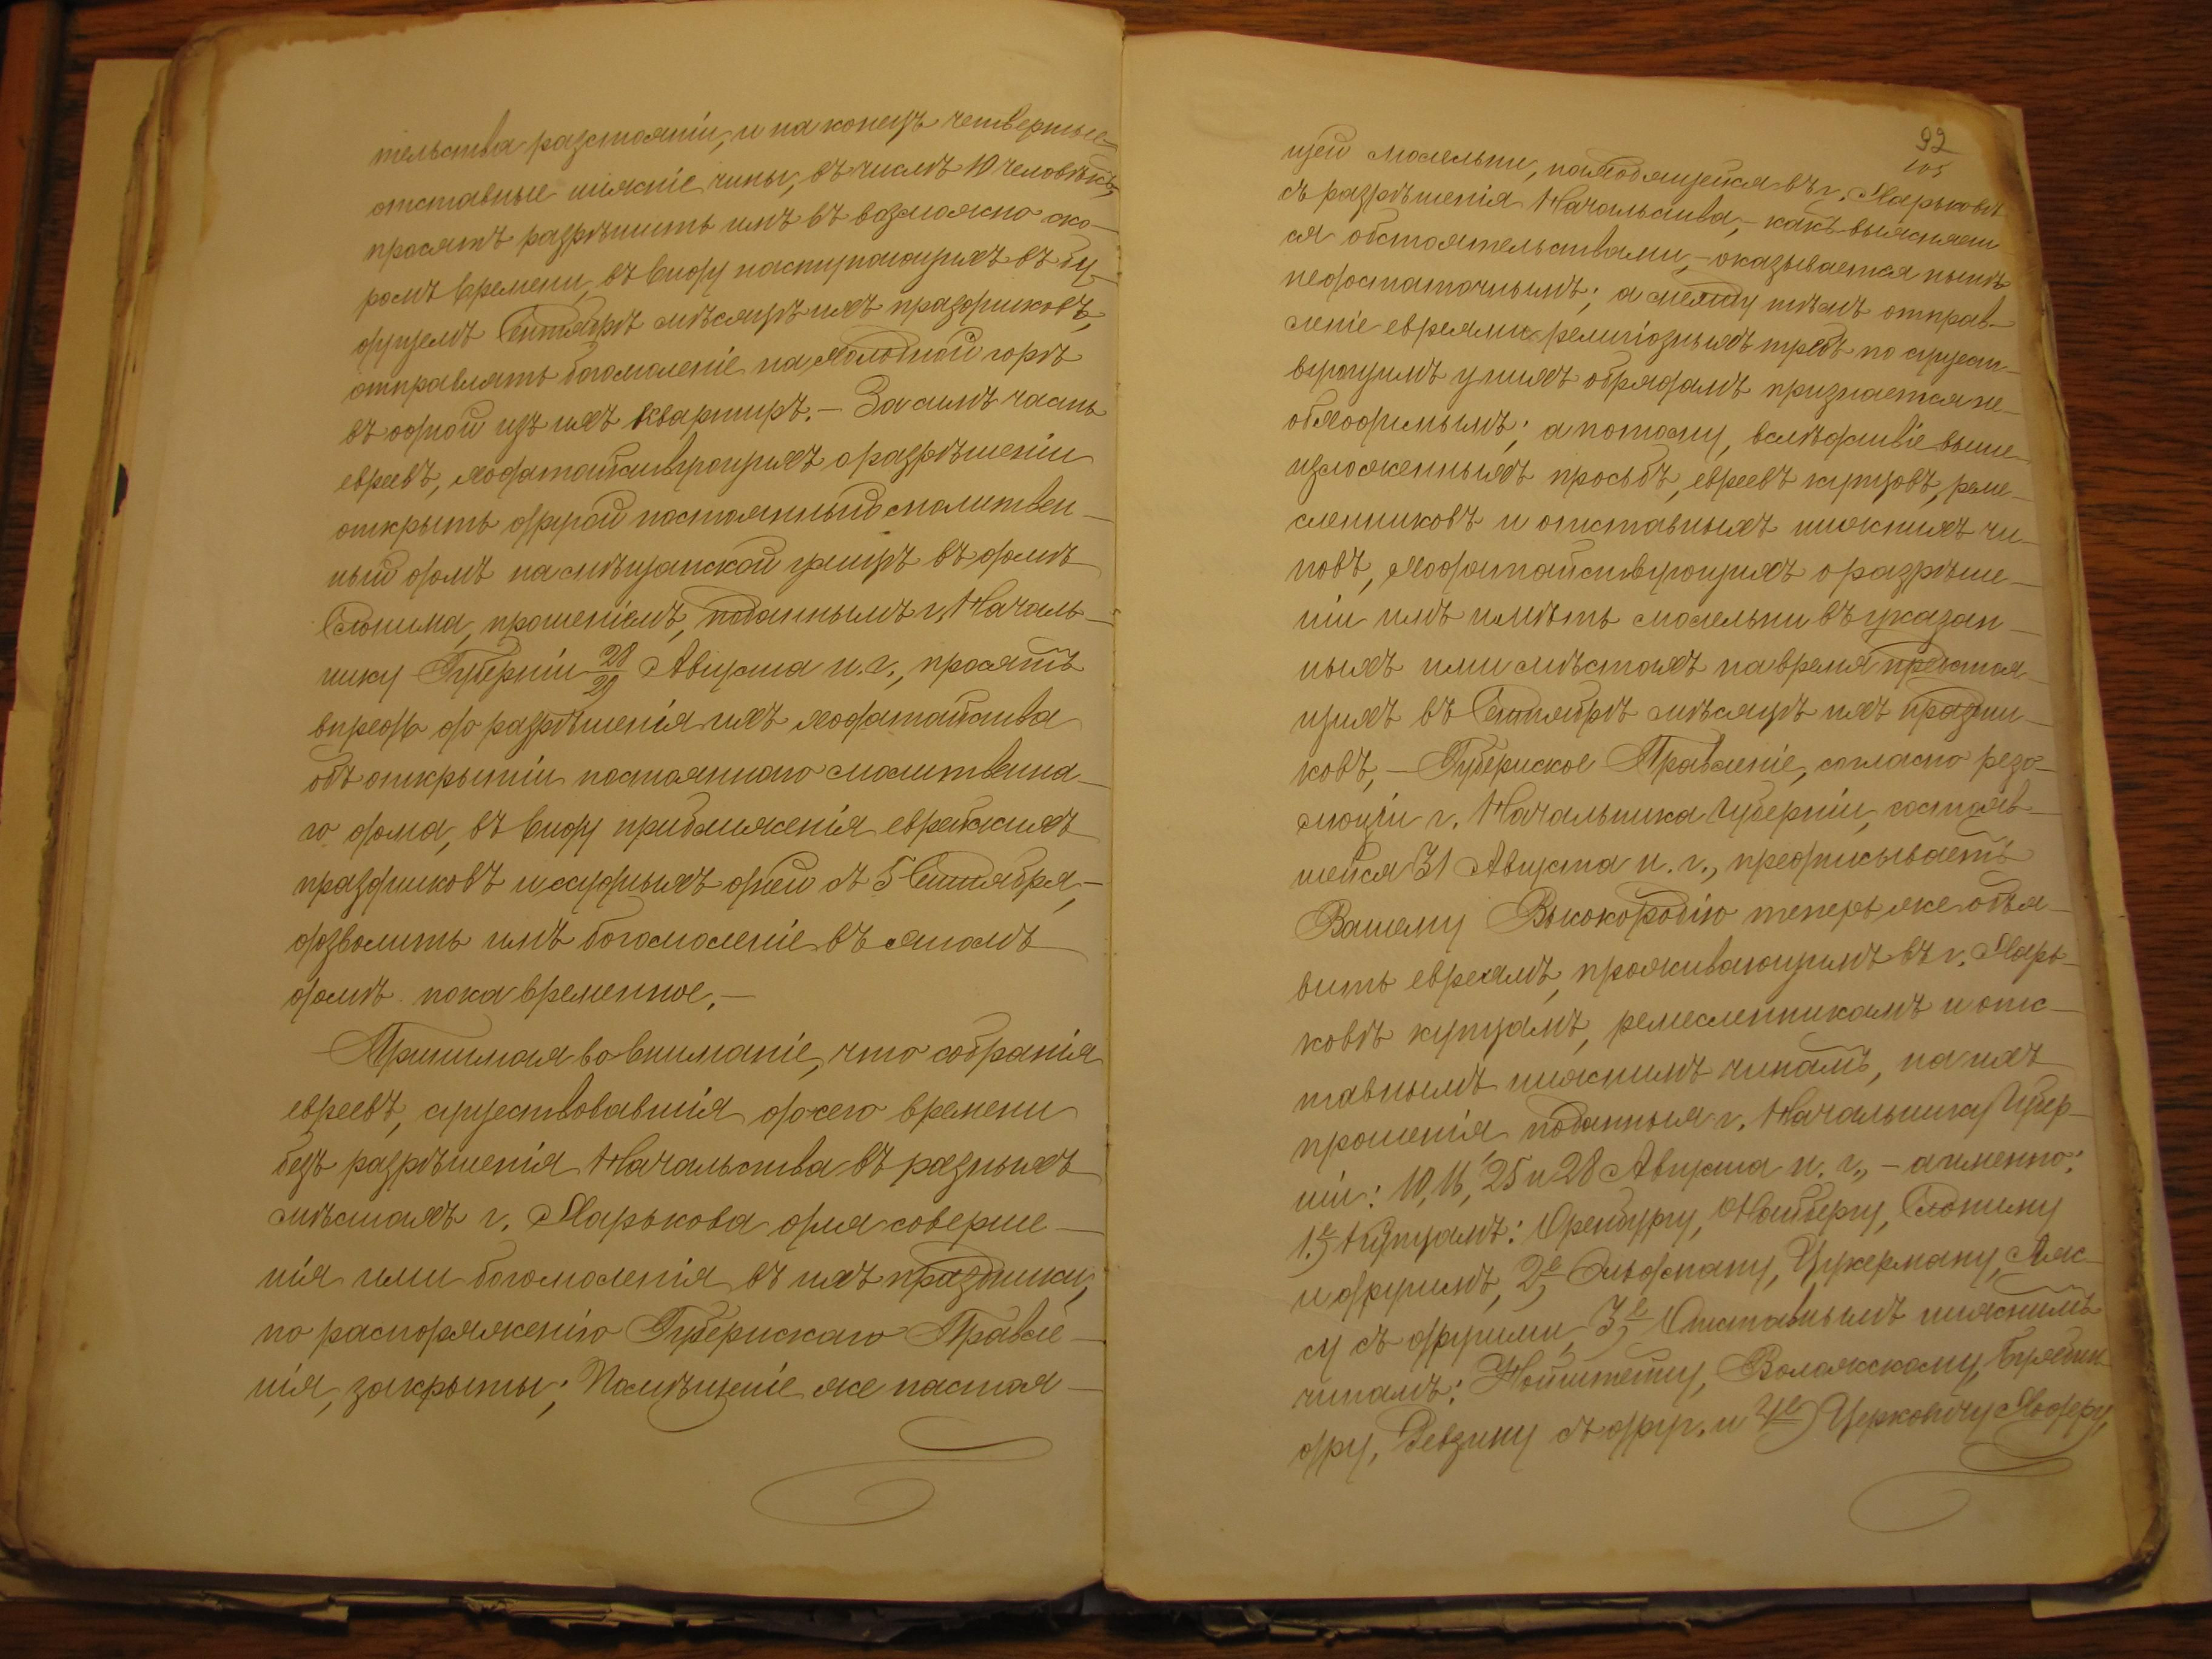 тельства разстояніи, и на конецъ четвертые–
отставные нижніе чины, въ числѣ 10 человѣкъ,
просятъ разрѣшить имъ въ возможно ско-
ромъ времени, въ виду наступающихъ въ бу-
дущемъ Сентябрѣ мѣсяцѣ ихъ праздниковъ,
отправлять богомоленіе на Холодной горѣ
въ одной изъ ихъ квартиръ. – За симъ часть
евреевъ, ходатайствующихъ о разрѣшеніи
открыть другой постоянный молитвен-
ный домъ на мѣщанской улицѣ въ домѣ
Слонима, прошеніемъ, поданнымъ г. Началь-
нику Губерніи 28/29 Августа н. г., просятъ
впредь до разрѣшенія ихъ ходатайства
объ открытіи постояннаго молитвенна-
го дома, въ виду приближенія еврейскихъ
праздниковъ и судныхъ дней съ 5 Сентября, –
дозволить имъ богомоленіе въ этомъ
домѣ пока временное. –
Принимая во вниманіе, что собранія
евреевъ, существовавшія до сего времени
безъ разрѣшенія Начальства въ разныхъ
мѣстахъ г. Харькова для соверше-
нія ими богомоленія въ ихъ праздники,
по распоряженію Губернскаго Правле-
нія, закрыты; Помѣщеніе же настоя-
92
105
щей молельни, находящейся въ г. Харьковѣ
съ разрѣшенія Начальства, – какъ выясняет
ся обстоятельствами, – оказывается нынѣ
недостаточнымъ; а между тѣмъ отправ-
леніе евреями религіозныхъ требъ по сущест-
вующимъ у нихъ обрядамъ признается не-
обходимымъ; а потому, вслѣдствіе выше-
изложенныхъ просьбъ, евреевъ купцовъ, реме-
сленниковъ и отставныхъ нижнихъ чи-
новъ, ходатайствующихъ о разрѣше-
ніи имъ имѣть молельни въ указан-
ныхъ ими мѣстахъ на время предстоя-
щихъ въ Сентябрѣ мѣсяцѣ ихъ праздни-
ковъ, – Губернское Правленіе, согласно резо-
люціи г. Начальника Губерніи, состояв-
шейся 31 Августа н. г., предписываетъ
Вашему Высокородію теперь же объя-
вить евреямъ, проживающимъ въ г. Харь-
ковѣ купцамъ, ремесленникамъ и отс-
тавнымъ нижнимъ чинамъ, на ихъ
прошенія, поданныя г. Начальнику Губер-
ніи: 10, 16, 25 и 28 Августа н. г., – а именно:
1.е) Купцамъ: Оренбургу, Слониму
и другимъ, 2е) Эльдману, Цукерману,
су съ другими, 3е) Отставнымъ нижнимъ
чинамъ: Нейштету, Воложскому,
дру, Ревзину съ друг. и 4е) Церковичу